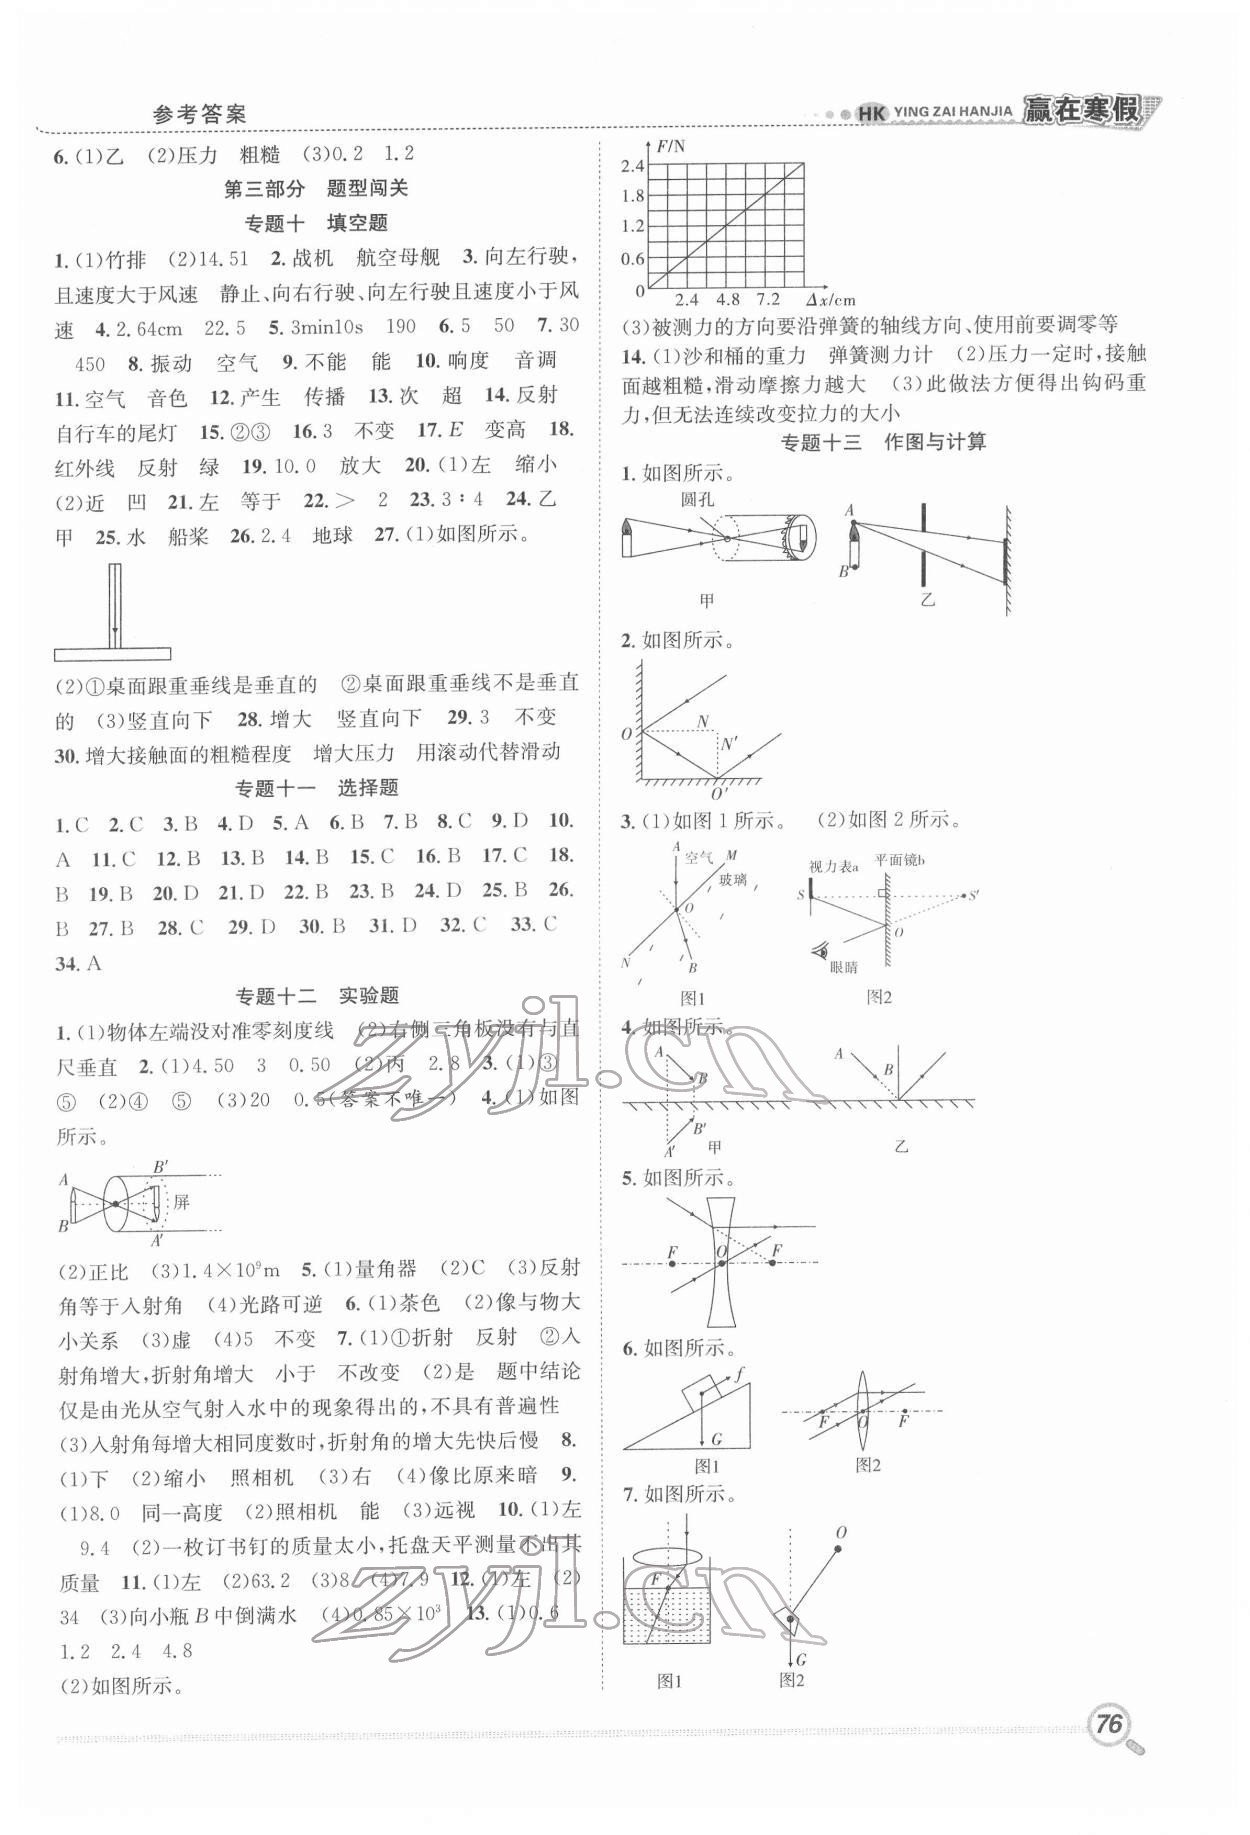 参考答案
HK YING ZAI HANJIA 赢在寒假
6.(1)乙 (2)压力 粗糙 (3)0.2 1.2
第三部分 题型闯关
专题十 填空题
1.(1)竹排 (2)14.51 2.战机 航空母舰 3.向左行驶,
且速度大于风速 静止、向右行驶、向左行驶且速度小于风
速 4.2.64cm 22.5 5.3min10s 190 6.5 50 7.30
450 8.振动 空气 9.不能 能 10.响度 音调
11.空气 音色 12.产生 传播 13.次 超 14.反射
自行车的尾灯 15.②③ 16.3 不变 17.E 变高 18.
红外线 反射 绿 19.10.0 放大 20.(1)左 缩小
(2)近 凹 21.左 等于 22.> 2 23.3∶4 24.乙
甲 25.水 船桨 26.2.4 地球 27.(1)如图所示。
(2)①桌面跟重垂线是垂直的 ②桌面跟重垂线不是垂直
的 (3)竖直向下 28.增大 竖直向下 29.3 不变
30.增大接触面的粗糙程度 增大压力 用滚动代替滑动
专题十一 选择题
1.C 2.C 3.B 4.D 5.A 6.B 7.B 8.C 9.D 10.
A 11.C 12.B 13.B 14.B 15.C 16.B 17.C 18.
B 19.B 20.D 21.D 22.B 23.B 24.D 25.B 26.
B 27.B 28.C 29.D 30.B 31.D 32.C 33.C
34.A
专题十二 实验题
1.(1)物体左端没对准零刻度线 (2)右侧三角板没有与直
尺垂直 2.(1)4.50 3 0.50 (2)丙 2.8 3.(1)③
⑤ (2)④ ⑤ (3)20 0.5(答案不唯一) 4.(1)如图
所示。
A B B' A' 屏
(2)正比 (3)1.4×10⁹m 5.(1)量角器 (2)C (3)反射
角等于入射角 (4)光路可逆 6.(1)茶色 (2)像与物大
小关系 (3)虚 (4)5 不变 7.(1)①折射 反射 ②入
射角增大,折射角增大 小于 不改变 (2)是 题中结论
仅是由光从空气射入水中的现象得出的,不具有普遍性
(3)入射角每增大相同度数时,折射角的增大先快后慢 8.
(1)下 (2)缩小 照相机 (3)右 (4)像比原来暗 9.
(1)8.0 同一高度 (2)照相机 能 (3)远视 10.(1)左
9.4 (2)一枚订书钉的质量太小,托盘天平测量不出其
质量 11.(1)左 (2)63.2 (3)8 (4)7.9 12.(1)左 (2)
34 (3)向小瓶B中倒满水 (4)0.85×10³ 13.(1)0.6
1.2 2.4 4.8
(2)如图所示。
F/N
2.4
1.8
1.2
0.6
0
2.4 4.8 7.2 Δx/cm
(3)被测力的方向要沿弹簧的轴线方向、使用前要调零等
14.(1)沙和桶的重力 弹簧测力计 (2)压力一定时,接触
面越粗糙,滑动摩擦力越大 (3)此做法方便得出钩码重
力,但无法连续改变拉力的大小
专题十三 作图与计算
1.如图所示。
圆孔
A
B
甲 乙
2.如图所示。
O N N' O'
3.(1)如图1所示。 (2)如图2所示。
A 空气 M 玻璃 O N B
视力表a 平面镜b S S' O 眼睛
图1 图2
4.如图所示。
A B B' A' 甲
A B 乙
5.如图所示。
F O F
6.如图所示。
f G 图1
F O F 图2
7.如图所示。
F 图1
O G 图2
76
zyjl.cn
zyjl.cn